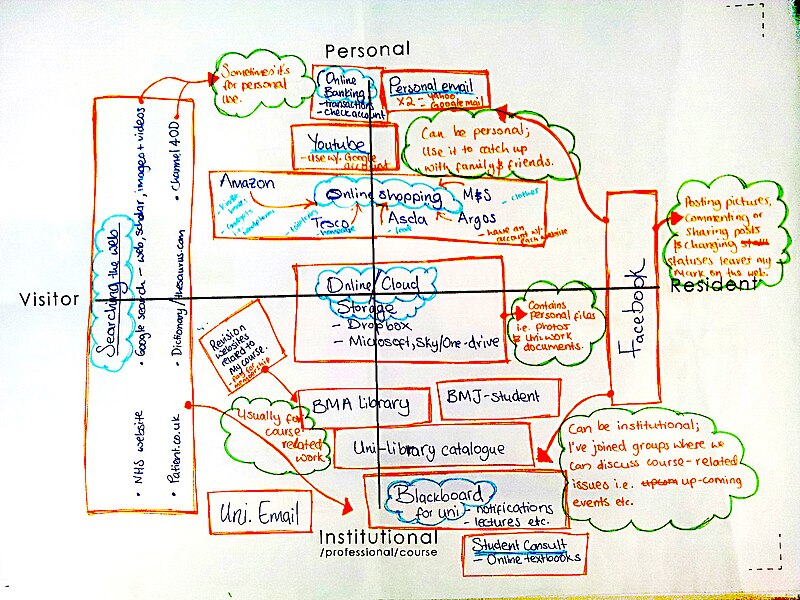 Personal
Sometimes it's
for personal
use.
Online
Banking
- transactions
- check account
Personal email
x2 - Yahoo
- Google mail
Youtube
- Use w/. Google
account
Can be personal;
Use it to catch up
with family & friends.
Amazon
Online shopping
M&S
- clothes
Tesco
Asda
- food
Argos
- have an
account w/.
each website
Searching the web
• Google search - web, scholar, images + videos
• Channel 4OD
• Dictionary/thesaurus.com
• NHS website
• Patient.co.uk
Visitor
Resident
Facebook
Posting pictures,
Commenting or
Sharing posts
& changing
statuses leaves my
mark on the web.
Online/Cloud
Storage
- Dropbox
- Microsoft, Sky/One-drive
Contains
personal files
i.e. photos
& Uni work
documents.
Revision
websites
related to
My course.
- paid for
membership
BMA library
BMJ-student
Usually for
course
related
work
Uni-library catalogue
Can be institutional;
I've joined groups where we
can discuss course-related
issues i.e. up-coming
events etc.
Blackboard
for uni - notifications
- lectures etc.
Uni. Email
Institutional
/professional/course
Student Consult
- Online textbooks